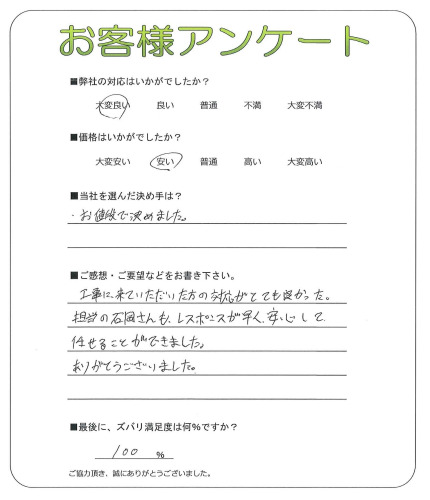 お客様アンケート
■弊社の対応はいかがでしたか？
大変良い 良い 普通 不満 大変不満
■価格はいかがでしたか？
大変安い 安い 普通 高い 大変高い
■当社を選んだ決め手は？
・お値段で決めました。
■ご感想・ご要望などをお書き下さい。
工事に来ていただいた方の対応がとても良かった。
担当の石岡さんも、レスポンスが早く、安心して
任せることができました。
ありがとうございました。
■最後に、ズバリ満足度は何％ですか？
100 ％
ご協力頂き、誠にありがとうございました。